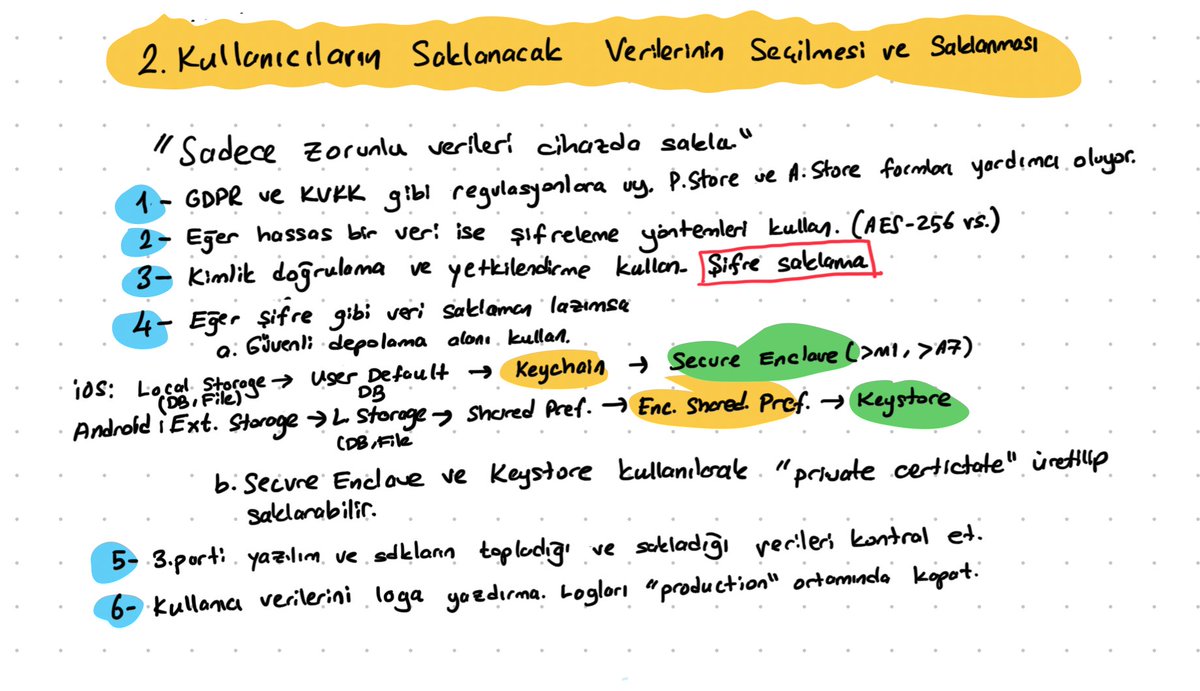 2. Kullanıcıların Saklanacak Verilerinin Seçilmesi ve Saklanması
"Sadece zorunlu verileri cihazda sakla."
1- GDPR ve KVKK gibi regulasyonlara uy. P.Store ve A.Store formları yardımcı oluyor.
2- Eğer hassas bir veri ise şifreleme yöntemleri kullan. (AES-256 vs.)
3- Kimlik doğrulama ve yetkilendirme kullan. Şifre saklama
4- Eğer şifre gibi veri saklaman lazımsa
a. Güvenli depolama alanı kullan.
iOS: Local Storage → User Default → Keychain → Secure Enclave (>M1, >A7)
(DB, File) DB
Android: Ext. Storage → L. Storage → Shared Pref. → Enc. Shared. Pref. → Keystore
(DB, File
b. Secure Enclave ve Keystore kullanılarak "private certictate" üretilip
saklanabilir.
5- 3.parti yazılım ve sdkların topladığı ve sakladığı verileri kontrol et.
6- Kullanıcı verilerini loga yazdırma. Logları "production" ortamında kapat.